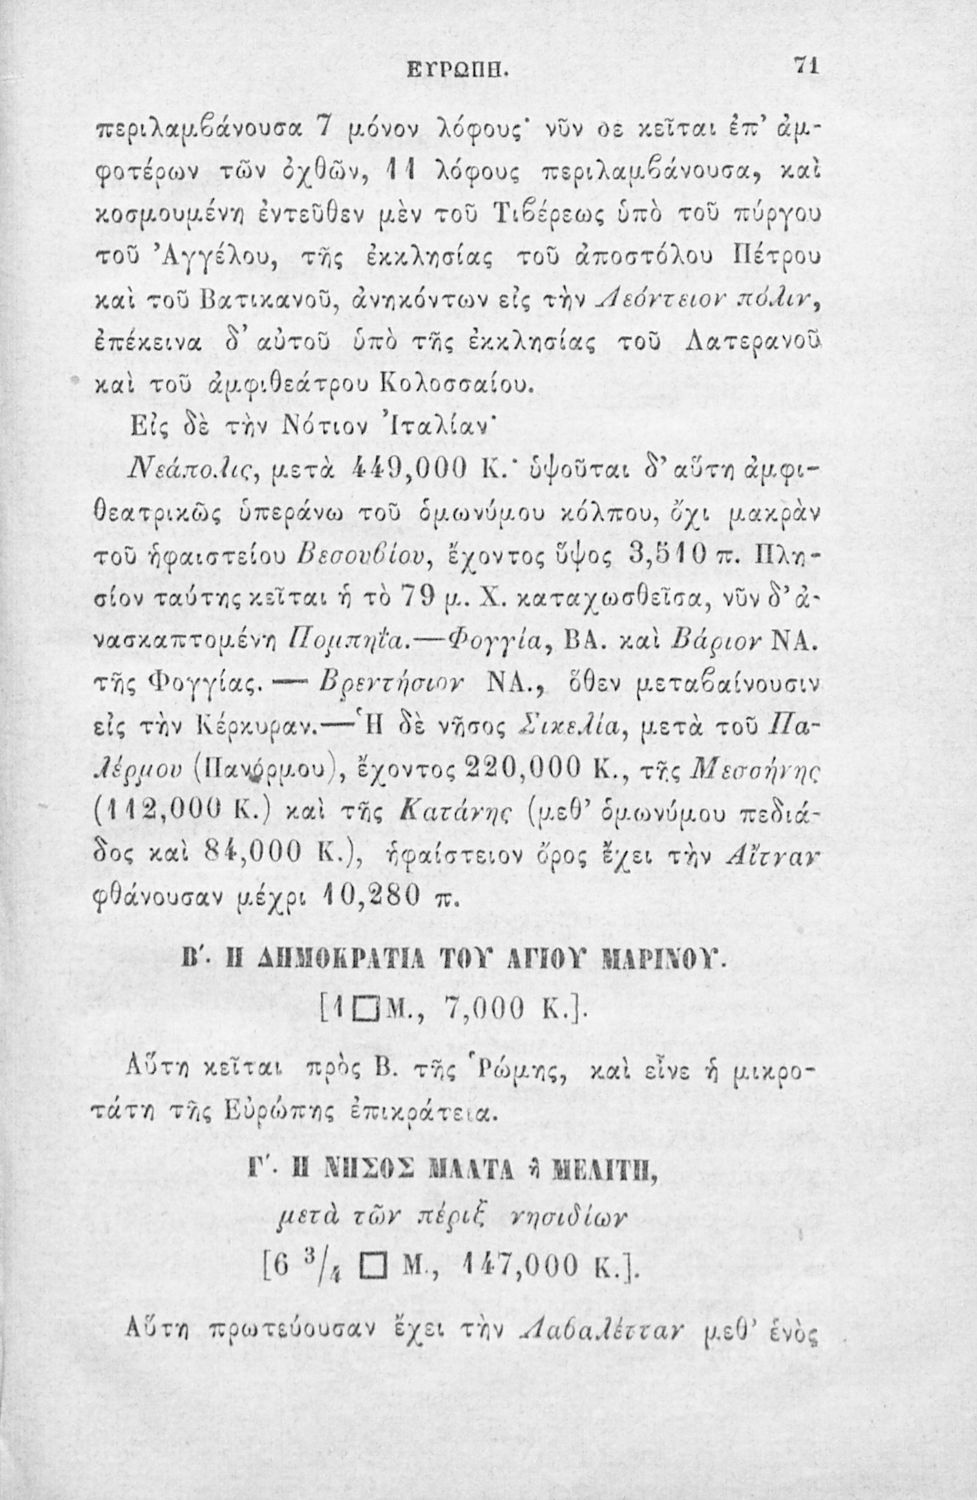 ΕΥΡΩΠΗ. 71
περιλαμβάνουσα 7 μόνον λόφους· νῦν δε κεῖται ἐπ’ ἀμ-
φοτέρων τῶν ὀχθῶν, 11 λόφους περιλαμβάνουσα, καὶ
κοσμουμένη ἐντεῦθεν μὲν τοῦ Τιβέρεως ὑπὸ τοῦ πύργου
τοῦ Ἀγγέλου, τῆς ἐκκλησίας τοῦ ἀποστόλου Πέτρου
καὶ τοῦ Βατικανοῦ, ἀνηκόντων εἰς τὴν Λεόντειον πόλιν,
ἐπέκεινα δ’ αὐτοῦ ὑπὸ τῆς ἐκκλησίας τοῦ Λατερανοῦ
καὶ τοῦ ἀμφιθεάτρου Κολοσσαίου.
Εἰς δὲ τὴν Νότιον Ἰταλίαν·
Νεάπολις, μετὰ 449,000 Κ.· ὑψοῦται δ’ αὕτη ἀμφι-
θεατρικῶς ὑπεράνω τοῦ ὁμωνύμου κόλπου, ὄχι μακρὰν
τοῦ ἡφαιστείου Βεσουβίου, ἔχοντος ὕψος 3,510 π. Πλη-
σίον ταύτης κεῖται ἡ τὸ 79 μ. Χ. καταχωσθεῖσα, νῦν δ’ ἀ-
νασκαπτομένη Πομπηΐα.—Φογγία, ΒΑ. καὶ Βάριον ΝΑ.
τῆς Φογγίας. — Βρεντήσιον ΝΑ., ὅθεν μεταβαίνουσιν
εἰς τὴν Κέρκυραν.—Ἡ δὲ νῆσος Σικελία, μετὰ τοῦ Πα-
λέρμου (Πανόρμου), ἔχοντος 220,000 Κ., τῆς Μεσσήνης
(112,000 Κ.) καὶ τῆς Κατάνης (μεθ’ ὁμωνύμου πεδιά-
δος καὶ 84,000 Κ.), ἡφαίστειον ὄρος ἔχει τὴν Αἴτναν
φθάνουσαν μέχρι 10,280 π.
Β΄. Η ΔΗΜΟΚΡΑΤΙΑ ΤΟΥ ΑΓΙΟΥ ΜΑΡΙΝΟΥ.
[1 □ Μ., 7,000 Κ.].
Αὕτη κεῖται πρὸς Β. τῆς Ῥώμης, καὶ εἶνε ἡ μικρο-
τάτη τῆς Εὐρώπης ἐπικράτεια.
Γ΄. Η ΝΗΣΟΣ ΜΑΛΤΑ ἢ ΜΕΛΙΤΗ,
μετὰ τῶν πέριξ νησιδίων
[6 3/4 □ Μ., 147,000 Κ.].
Αὕτη πρωτεύουσαν ἔχει τὴν Λαβαλέτταν μεθ’ ἑνὸς